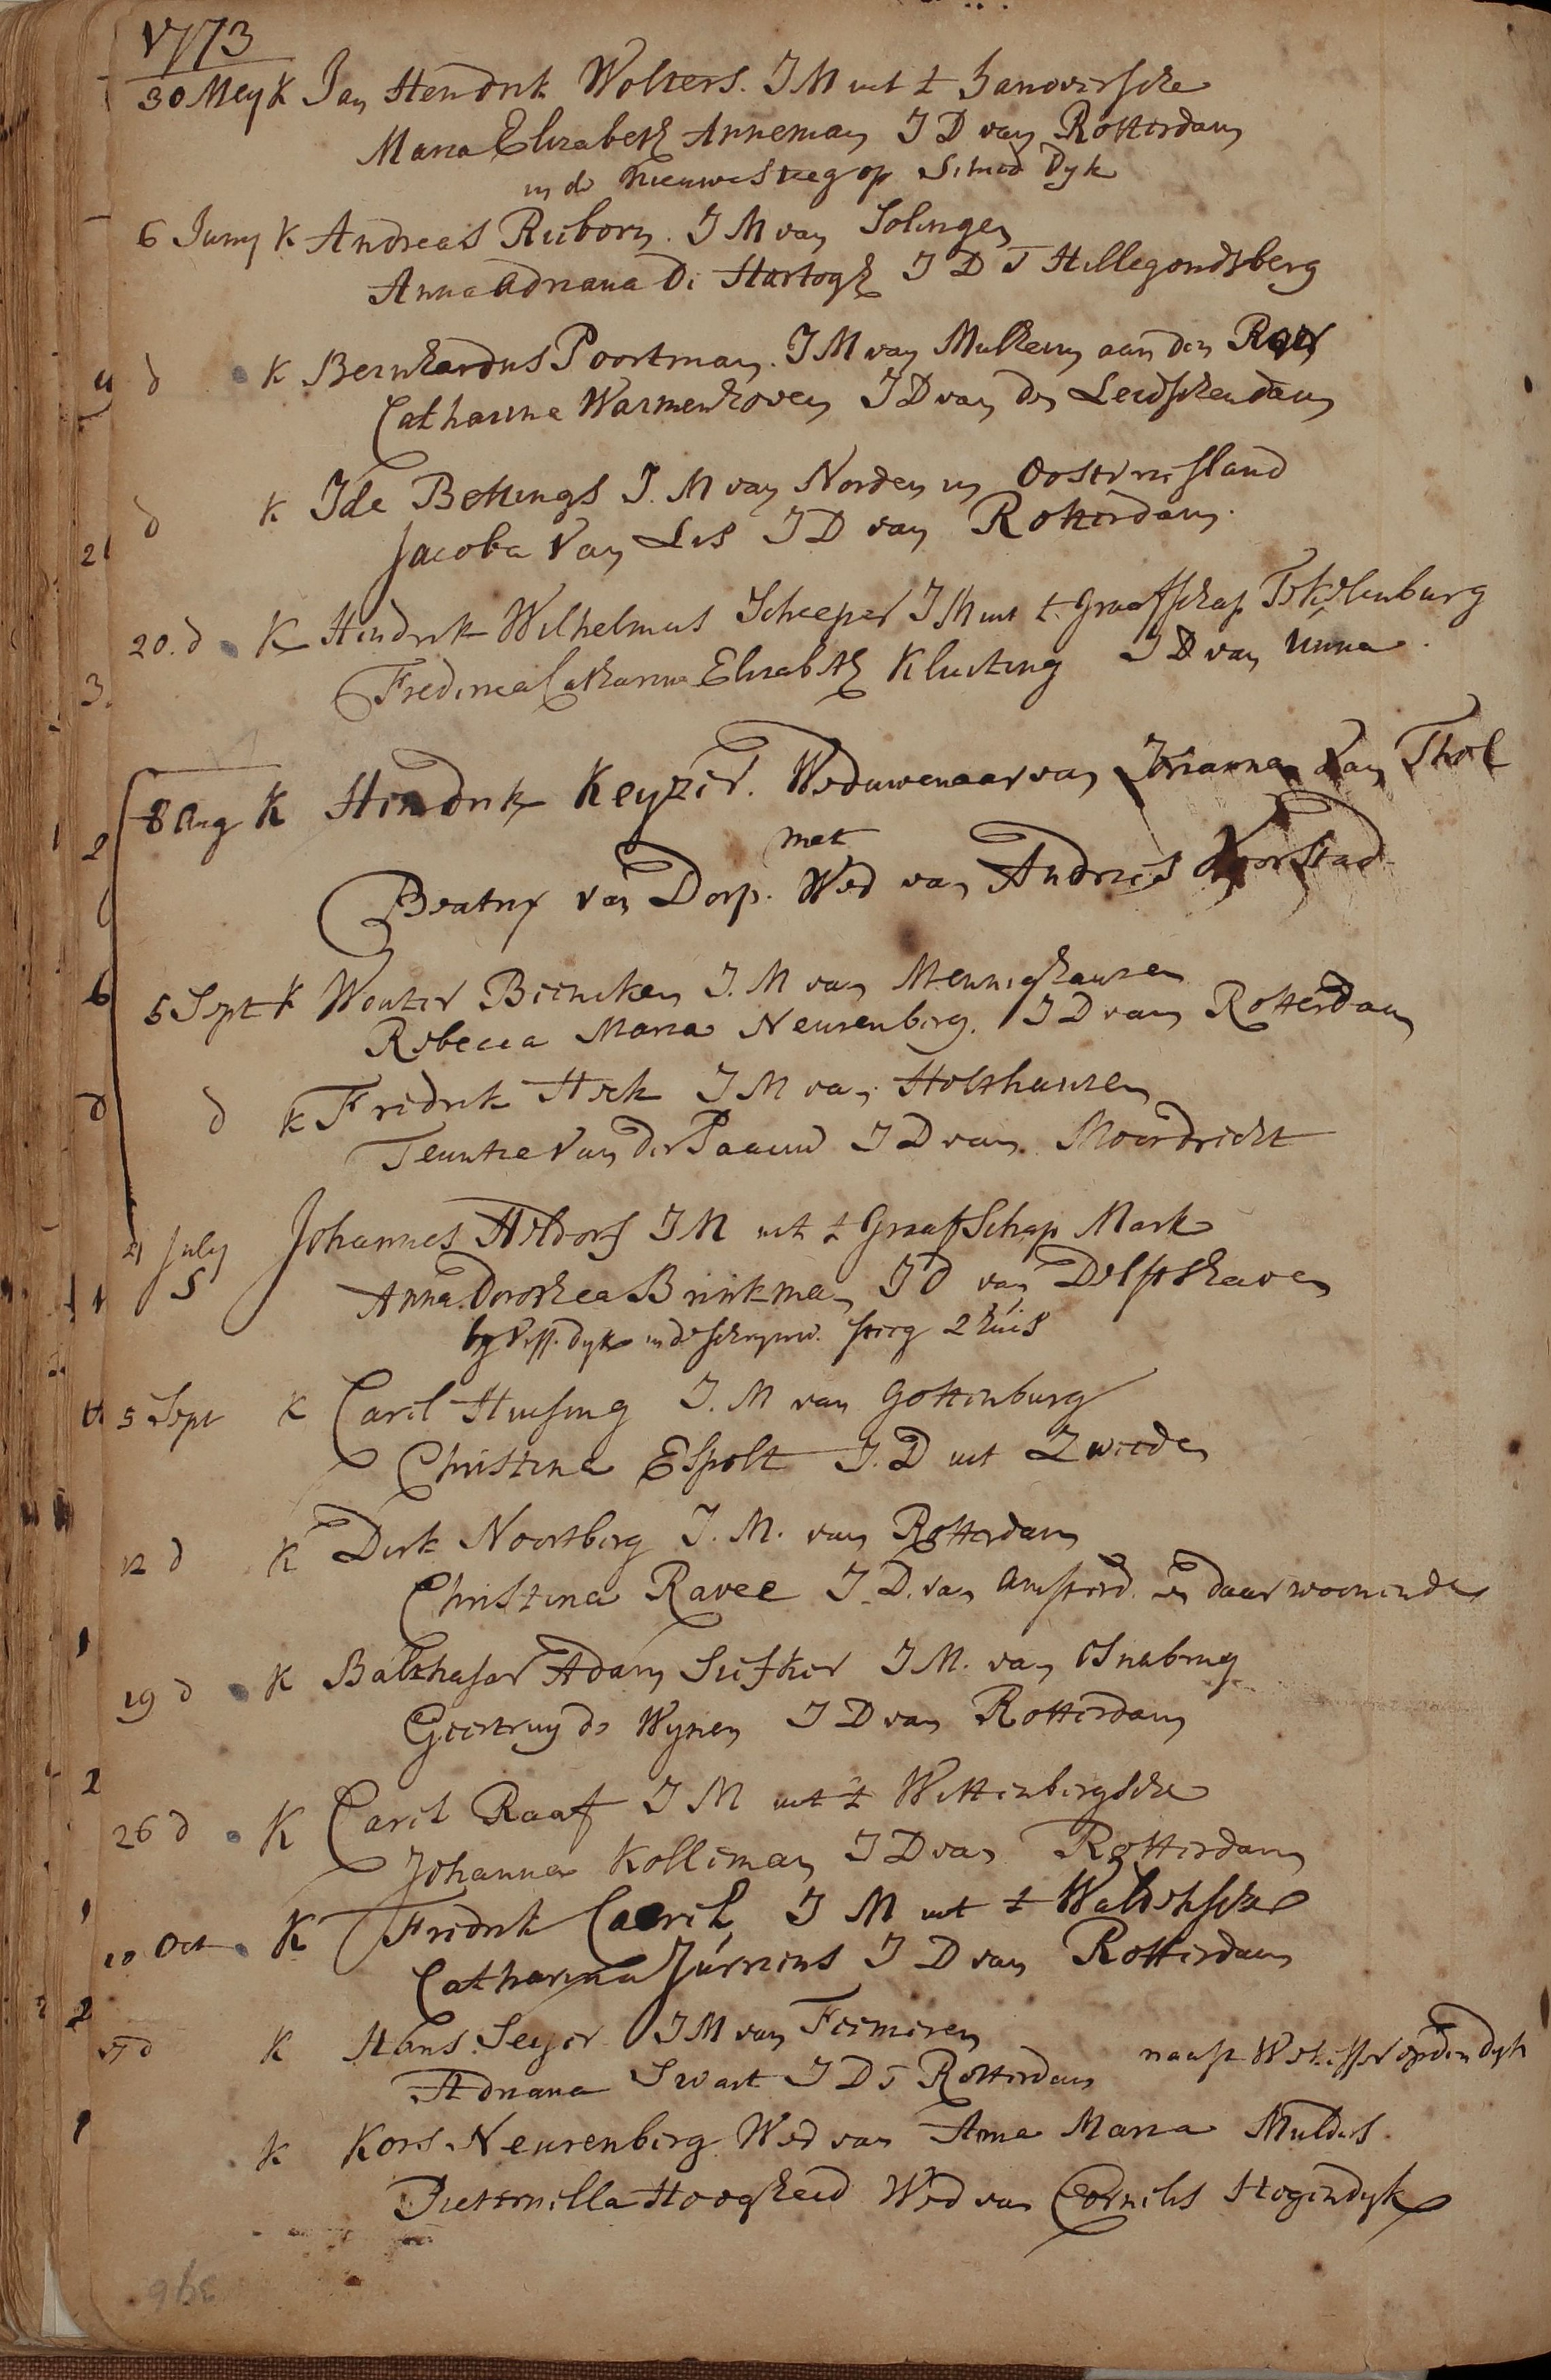 1773
30 Mey K Jan Hendrik Wolters. J M uit t Hanoversche
Maria Elizabeth Anneman J D van Rotterdam
in de Nieuwesteeg op Schied Dyk
6 Juny K Andreas Rieborn. J M van Solingen
Anna Adriana De Hartogh J D v Hillegondsberg
d K Bernhardus Poortman. J M van Mulheim aan den Roer
Catharina Warmenhoven J D van den Leidschendam
d K Ide Bettings J. M van Norden in Oostvriesland
Jacoba Van Les J D van Rotterdam.
20. d K Hendrik Wilhelmus Scheeper J M uit t. Graafschap Teklenburg
Frederica Catharina Elizabeth Kluiting J D van Unna.
8 Aug K Hendrik Keyzer. Weduwenaar van Johanna Van Thol
met
Beatrix van Dorp. Wed van Andries Voorstad
5 Sept K Wouter Biencken J. M van Mennighausen
Rebecca Maria Neurenberg. J D van Rotterdam
d K Fredrik Hek J M van Holthausen
Teuntie Van der Paauw J D van Moordrecht
21 July Johannes Aldorf J M uit t Graafschap Mark
S Anna Dorothea Brinkman J D van Delfshaven
by Viss. dyk in de schrynw. steeg 2 huis
5 Sept K Carel Huising J. M van Gottenburg
Christina Espolt J. D uit Zweeden
12 d K Dirk Noortberg J. M. van Rotterdam
Christina Ravee J. D. van Amsterd. en daar woonende
19 d K Balthasar Adam Siefker J M. van Osnabrug
Geertruy de Wynen J D van Rotterdam
26 d K Carel Raaf J M uit t Wittenbergsche
Johanna Kolleman J D van Rotterdam
10 Oct K Fredrik Caarel J M uit t Waldeksche
Catharina Jurriens J D van Rotterdam
17 d K Hans Seyer J M van Fermeren
Adriana Swart J D v Rotterdam naast op den dyk
K Kors Neurenberg Wed van Anna Maria Mulders
Pieternella Hoogheid Wed van Cornelis Hogendyk
396